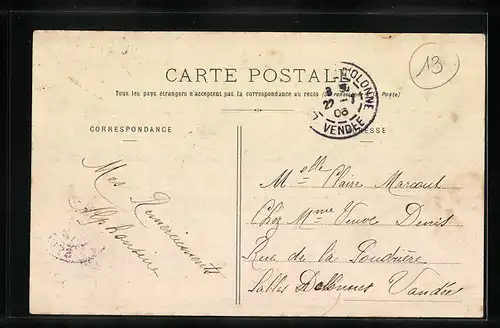 13
CARTE POSTALE
Tous les pays étrangers n'acceptent pas la correspondance au recto (Se renseigner à la Poste)
D'OLONNE
22 - 1
06
VENDÉE
CORRESPONDANCE
ADRESSE
Mes Remerciements
Alphonsine
Melle Claire
Chez Mme Veuve Denis
Rue de la Poudrière
Sables D'Olonnes Vendée